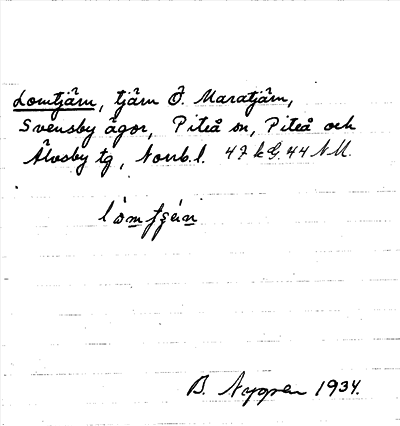 Lomtjärn, tjärn Ö. Maratjärn,
Svensby ägor, Piteå sn, Piteå och
Älvsby tg, Norrb. l. 47 k G. 44 N M.
B. Nyppen 1934.